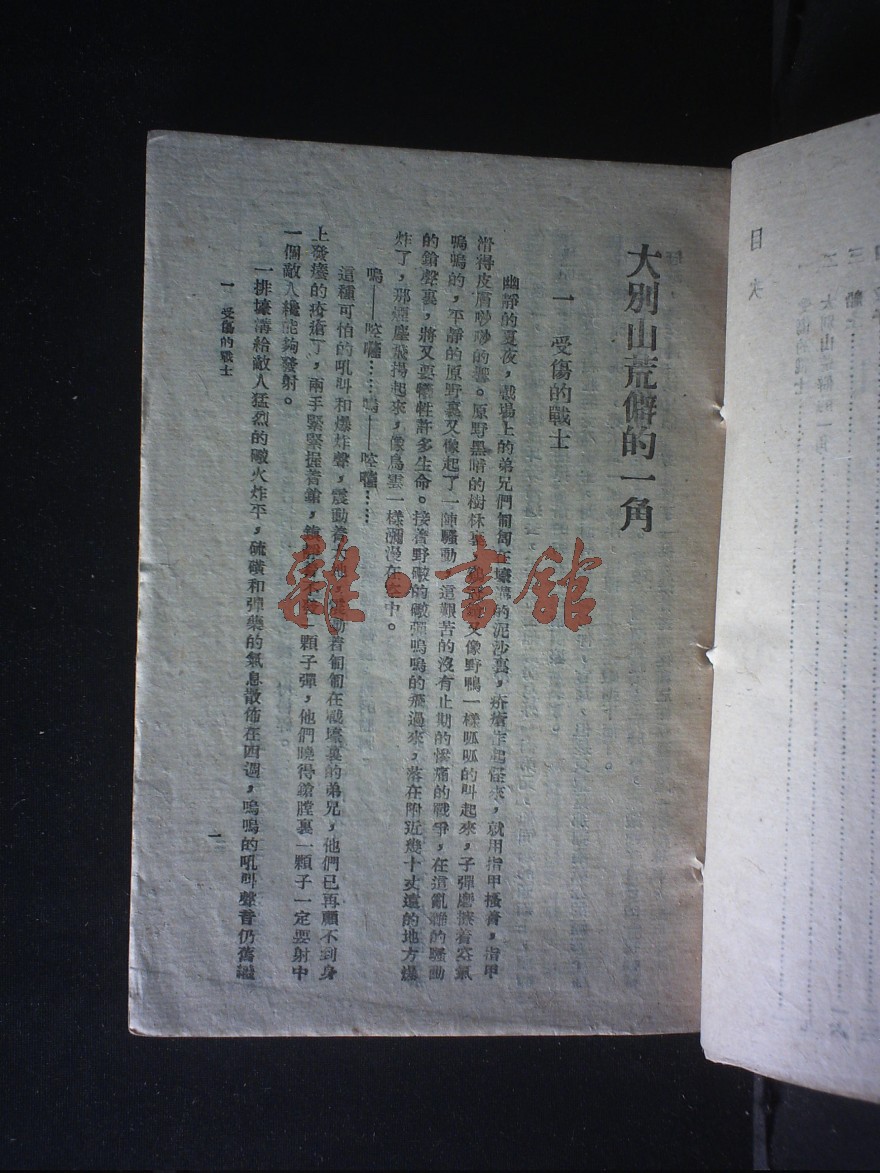 目次
受傷的戰士
二 大別山荒僻的一角
三 船上
一六
大別山荒僻的一角
一 受傷的戰士
幽靜的夏夜，戰場上的弟兄們匍匐在壕溝的泥沙裏，疥瘡作起怪來，就用指甲搔着，指甲
滑得皮膚唦唦的響。原野黑暗的樹林裏，又像野鴨一樣呱呱的叫起來，子彈磨擦着空氣
嗚嗚的，平靜的原野裏又像起了一陣騷動，這艱苦的沒有止期的慘痛的戰爭，在這亂雜的騷動
的鎗聲裏，將又要犧牲許多生命。接着野礮的礮彈嗚嗚的飛過來，落在附近幾十丈遠的地方爆
炸了，那煙塵飛揚起來，像烏雲一樣瀰漫在空中。
嗚——咹嚨……嗚——咹嚨……
這種可怕的吼叫和爆炸聲，震動着大地，震動着匍匐在戰壕裏的弟兄，他們已再顧不到身
上發癢的疥瘡了，兩手緊緊握着鎗，一顆子彈，他們曉得鎗膛裏一顆子一定要射中
一個敵人纔能夠發射。
一排壕溝給敵人猛烈的礮火炸平，硫磺和彈藥的氣息散佈在四週，嗚嗚的吼叫聲音仍舊繼
一 受傷的戰士
一
雜·書館